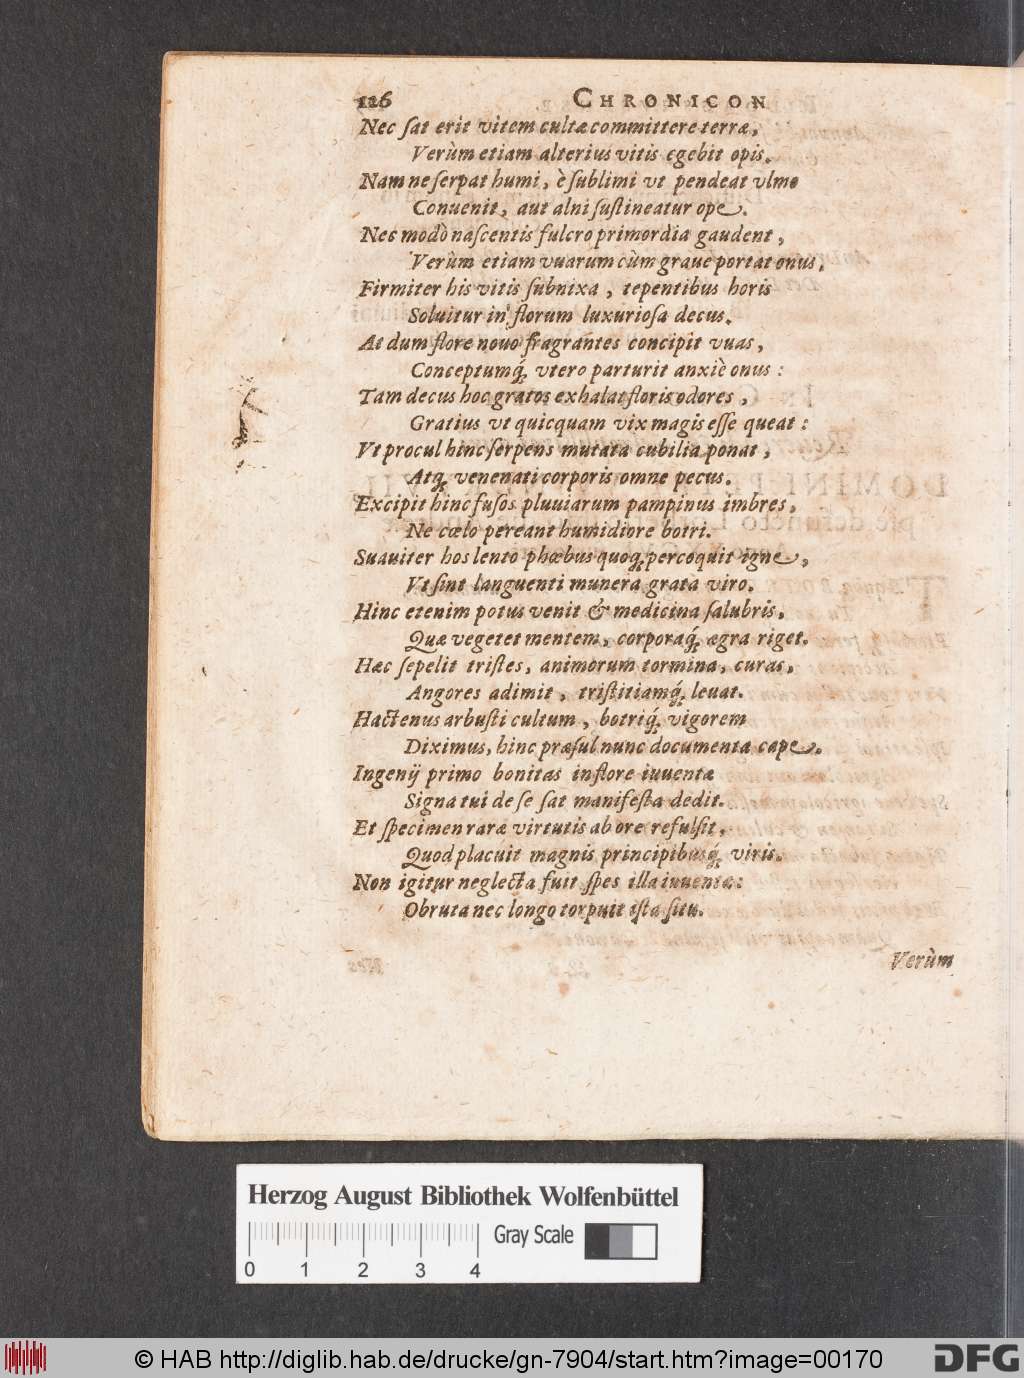 126 CHRONICON
Nec ſat erit vitem cultæ committere terræ,
Verùm etiam alterius vitis egebit opis.
Nam ne ſerpat humi, è ſublimi vt pendeat vlmo
Conuenit, aut alni ſuſtineatur ope.
Nec modò naſcentis fulcro primordia gaudent,
Verùm etiam vuarum cùm graue portat onus.
Firmiter his vitis ſubnixa, tepentibus horis
Soluitur in florum luxurioſa decus.
At dum flore nouo fragrantes concipit vuas,
Conceptumq́; vtero parturit anxiè onus:
Tam decus hoc gratos exhalat floris odores,
Gratius vt quicquam vix magis eſſe queat:
Vt procul hinc ſerpens mutata cubilia ponat,
Atq; venenati corporis omne pecus.
Excipit hinc fuſos pluuiarum pampinus imbres,
Ne cœlo pereant humidiore botri.
Suauiter hos lento phœbus quoq; percoquit igne,
Vt ſint languenti munera grata viro.
Hinc etenim potus venit & medicina ſalubris,
Quæ vegetet mentem, corporaq́; ægra riget.
Hæc ſepelit triſtes, animorum tormina, curas,
Angores adimit, triſtitiamq́; leuat.
Hactenus arbuſti cultum, botriq́; vigorem
Diximus, hinc præſul nunc documenta cape.
Ingenij primo bonitas in flore iuuentæ
Signa tui de ſe ſat manifeſta dedit.
Et ſpecimen raræ virtutis ab ore refulſit,
Quod placuit magnis principibusq́; viris.
Non igitur neglecta fuit ſpes illa iuuentæ:
Obruta nec longo torpuit iſta ſitu.
Verùm
Herzog August Bibliothek Wolfenbüttel
Gray Scale
0 1 2 3 4
© HAB http://diglib.hab.de/drucke/gn-7904/start.htm?image=00170
DFG